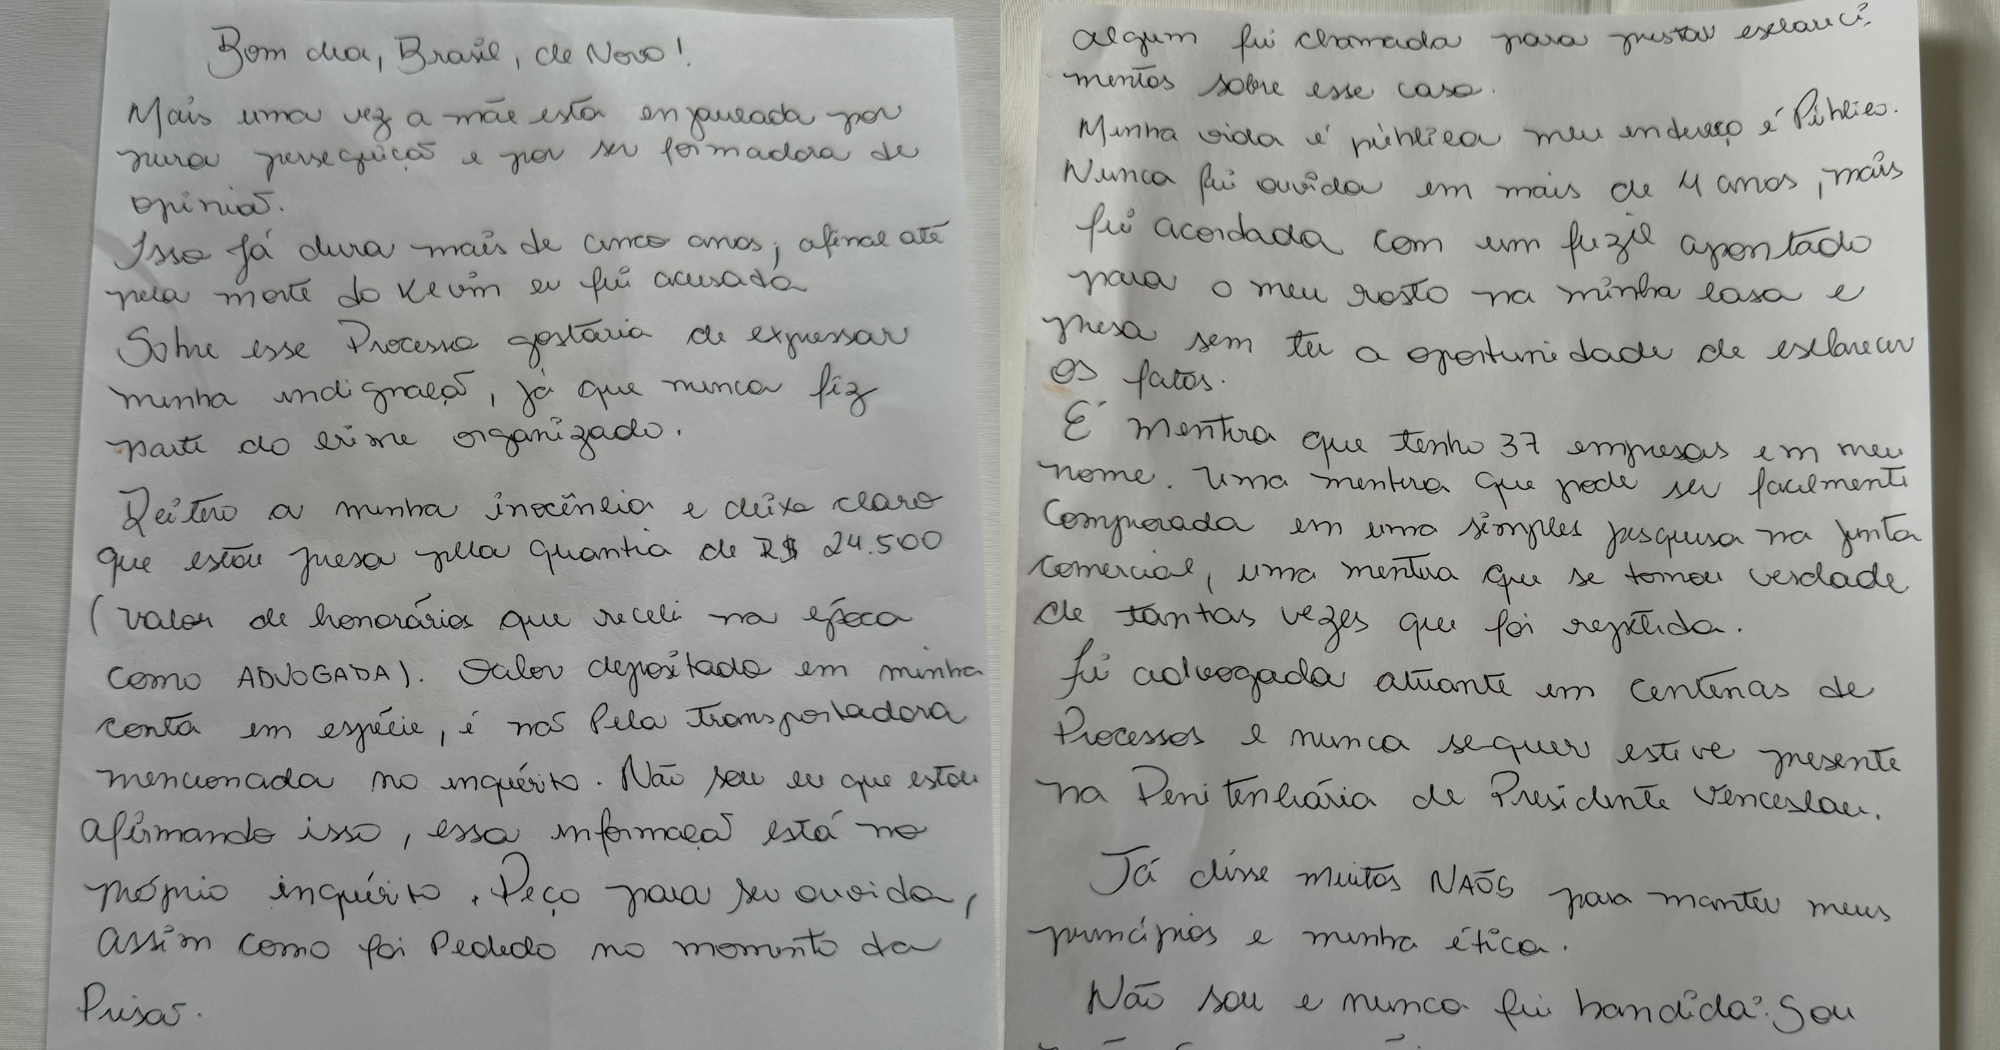 Bom dia, Brasil, de Novo!
Mais uma vez a mãe está enjaulada por
pura perseguiçaõ e por ser formadora de
opiniaõ.
Isso já dura mais de cinco anos, afinal até
pela morte do Kevin eu fui acusada
Sobre esse Processo gostaria de expressar
minha indignaçaõ, já que nunca fiz
parte do crime organizado.
Reitero a minha inocência e deixo claro
que estou presa pela quantia de R$ 24.500
(valor de honorários que recebi na época
como ADVOGADA). Valor depositado em minha
conta em espécie, é naõ Pela Transportadora
mencionada no inquérito. Não sou eu que estou
afirmando isso, essa informaçaõ está no
próprio inquérito. Peço para ser ouvida,
assim como foi Pedido no momento da
Prisaõ.
algum fui chamada para prestar esclareci-
mentos sobre esse caso.
Minha vida é pública meu endereço é Público.
Nunca fui ouvida em mais de 4 anos, mais
fui acordada com um fuzil apontado
para o meu rosto na minha casa e
presa sem ter a oportunidade de esclarecer
os fatos.
É mentira que tenho 37 empresas em meu
nome. Uma mentira que pode ser facilmente
Comprovada em uma simples pesquisa na junta
comercial, uma mentira que se tornou verdade
de tantas vezes que foi repetida.
fui advogada atuante em centenas de
Processos e nunca sequer estive presente
na Penitenciária de Presidente Venceslau.
Já disse muitos NAÕS para manter meus
princípios e minha ética.
Não sou e nunca fui bandida. Sou